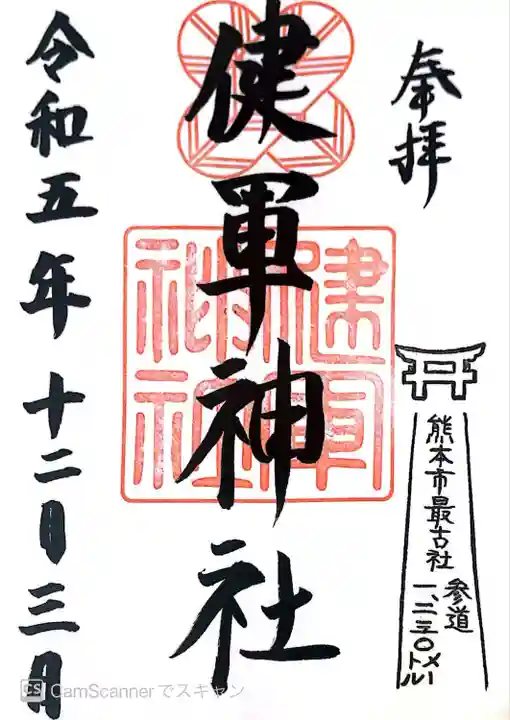 奉拝
熊本市最古社
参道
一、二三〇メートル
健軍神社
健軍
神社
令和五年十二月三日
CS CamScannerでスキャン